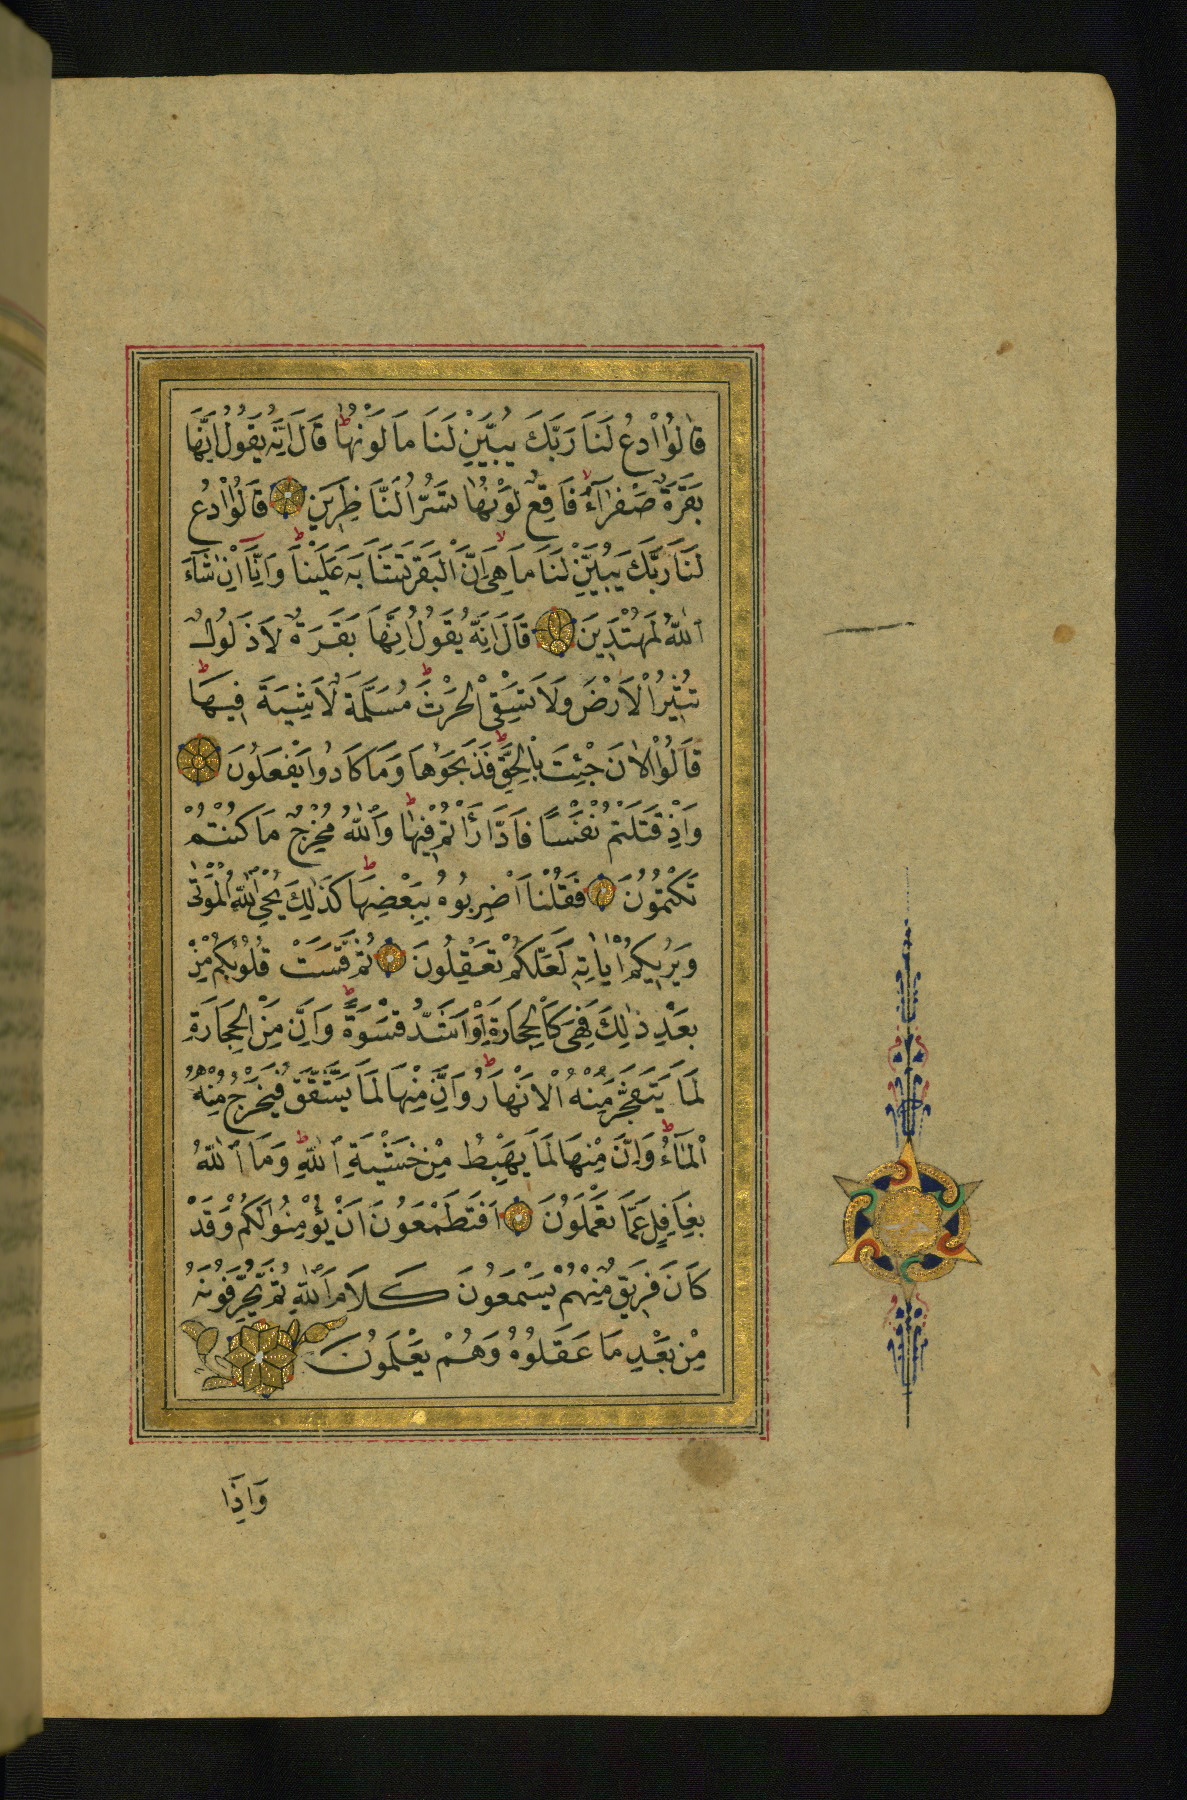 قَالُوا ادْعُ لَنَا رَبَّكَ يُبَيِّنْ لَنَا مَا لَوْنُهَا ط قَالَ اِنَّهُ يَقُولُ اِنَّهَا
بَقَرَةٌ صَفْرَآءُ لا فَاقِعٌ لَوْنُهَا تَسُرُّ النَّاظِرِينَ قَالُوا ادْعُ
لَنَا رَبَّكَ يُبَيِّنْ لَنَا مَا هِيَ لا اِنَّ الْبَقَرَ تَشَابَهَ عَلَيْنَا ط وَاِنَّآ اِنْ شَآءَ
اللّٰهُ لَمُهْتَدُونَ قَالَ اِنَّهُ يَقُولُ اِنَّهَا بَقَرَةٌ لَا ذَلُولٌ
تُثِيرُ الْاَرْضَ وَلَا تَسْقِي الْحَرْثَ ط مُسَلَّمَةٌ لَا شِيَةَ فِيهَا ط
قَالُوا الْاٰنَ جِئْتَ بِالْحَقِّ ط فَذَبَحُوهَا وَمَا كَادُوا يَفْعَلُونَ
وَاِذْ قَتَلْتُمْ نَفْسًا فَادَّارَأْتُمْ فِيهَا ط وَاللّٰهُ مُخْرِجٌ مَا كُنْتُمْ
تَكْتُمُونَ فَقُلْنَا اضْرِبُوهُ بِبَعْضِهَا ط كَذٰلِكَ يُحْيِ اللّٰهُ الْمَوْتٰى
وَيُرِيكُمْ اٰيَاتِهِ لَعَلَّكُمْ تَعْقِلُونَ ثُمَّ قَسَتْ قُلُوبُكُمْ مِنْ
بَعْدِ ذٰلِكَ فَهِيَ كَالْحِجَارَةِ اَوْ اَشَدُّ قَسْوَةً ط وَاِنَّ مِنَ الْحِجَارَةِ
لَمَا يَتَفَجَّرُ مِنْهُ الْاَنْهَارُ ط وَاِنَّ مِنْهَا لَمَا يَشَّقَّقُ فَيَخْرُجُ مِنْهُ
الْمَآءُ ط وَاِنَّ مِنْهَا لَمَا يَهْبِطُ مِنْ خَشْيَةِ اللّٰهِ ط وَمَا اللّٰهُ
بِغَافِلٍ عَمَّا تَعْمَلُونَ اَفَتَطْمَعُونَ اَنْ يُؤْمِنُوا لَكُمْ وَقَدْ
كَانَ فَرِيقٌ مِنْهُمْ يَسْمَعُونَ كَلَامَ اللّٰهِ ثُمَّ يُحَرِّفُونَهُ
مِنْ بَعْدِ مَا عَقَلُوهُ وَهُمْ يَعْلَمُونَ
وَاِذَا